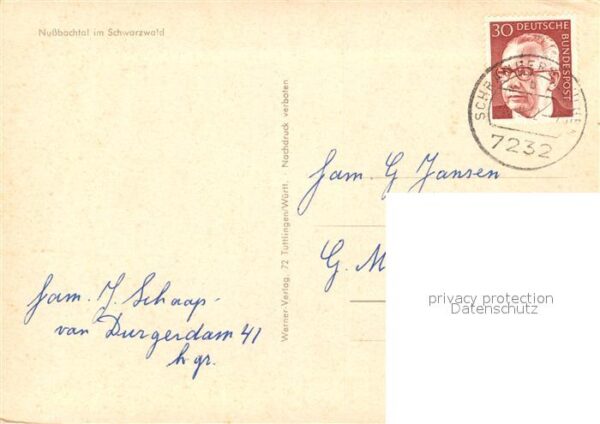 Nußbachtal im Schwarzwald
30 DEUTSCHE BUNDESPOST
7232
Werner-Verlag, 72 Tuttlingen/Württ. Nachdruck verboten
fam. G Jansen
G. M
privacy protection
Datenschutz
fam. J. Schaap-
van Durgerdam 41
h.gr.